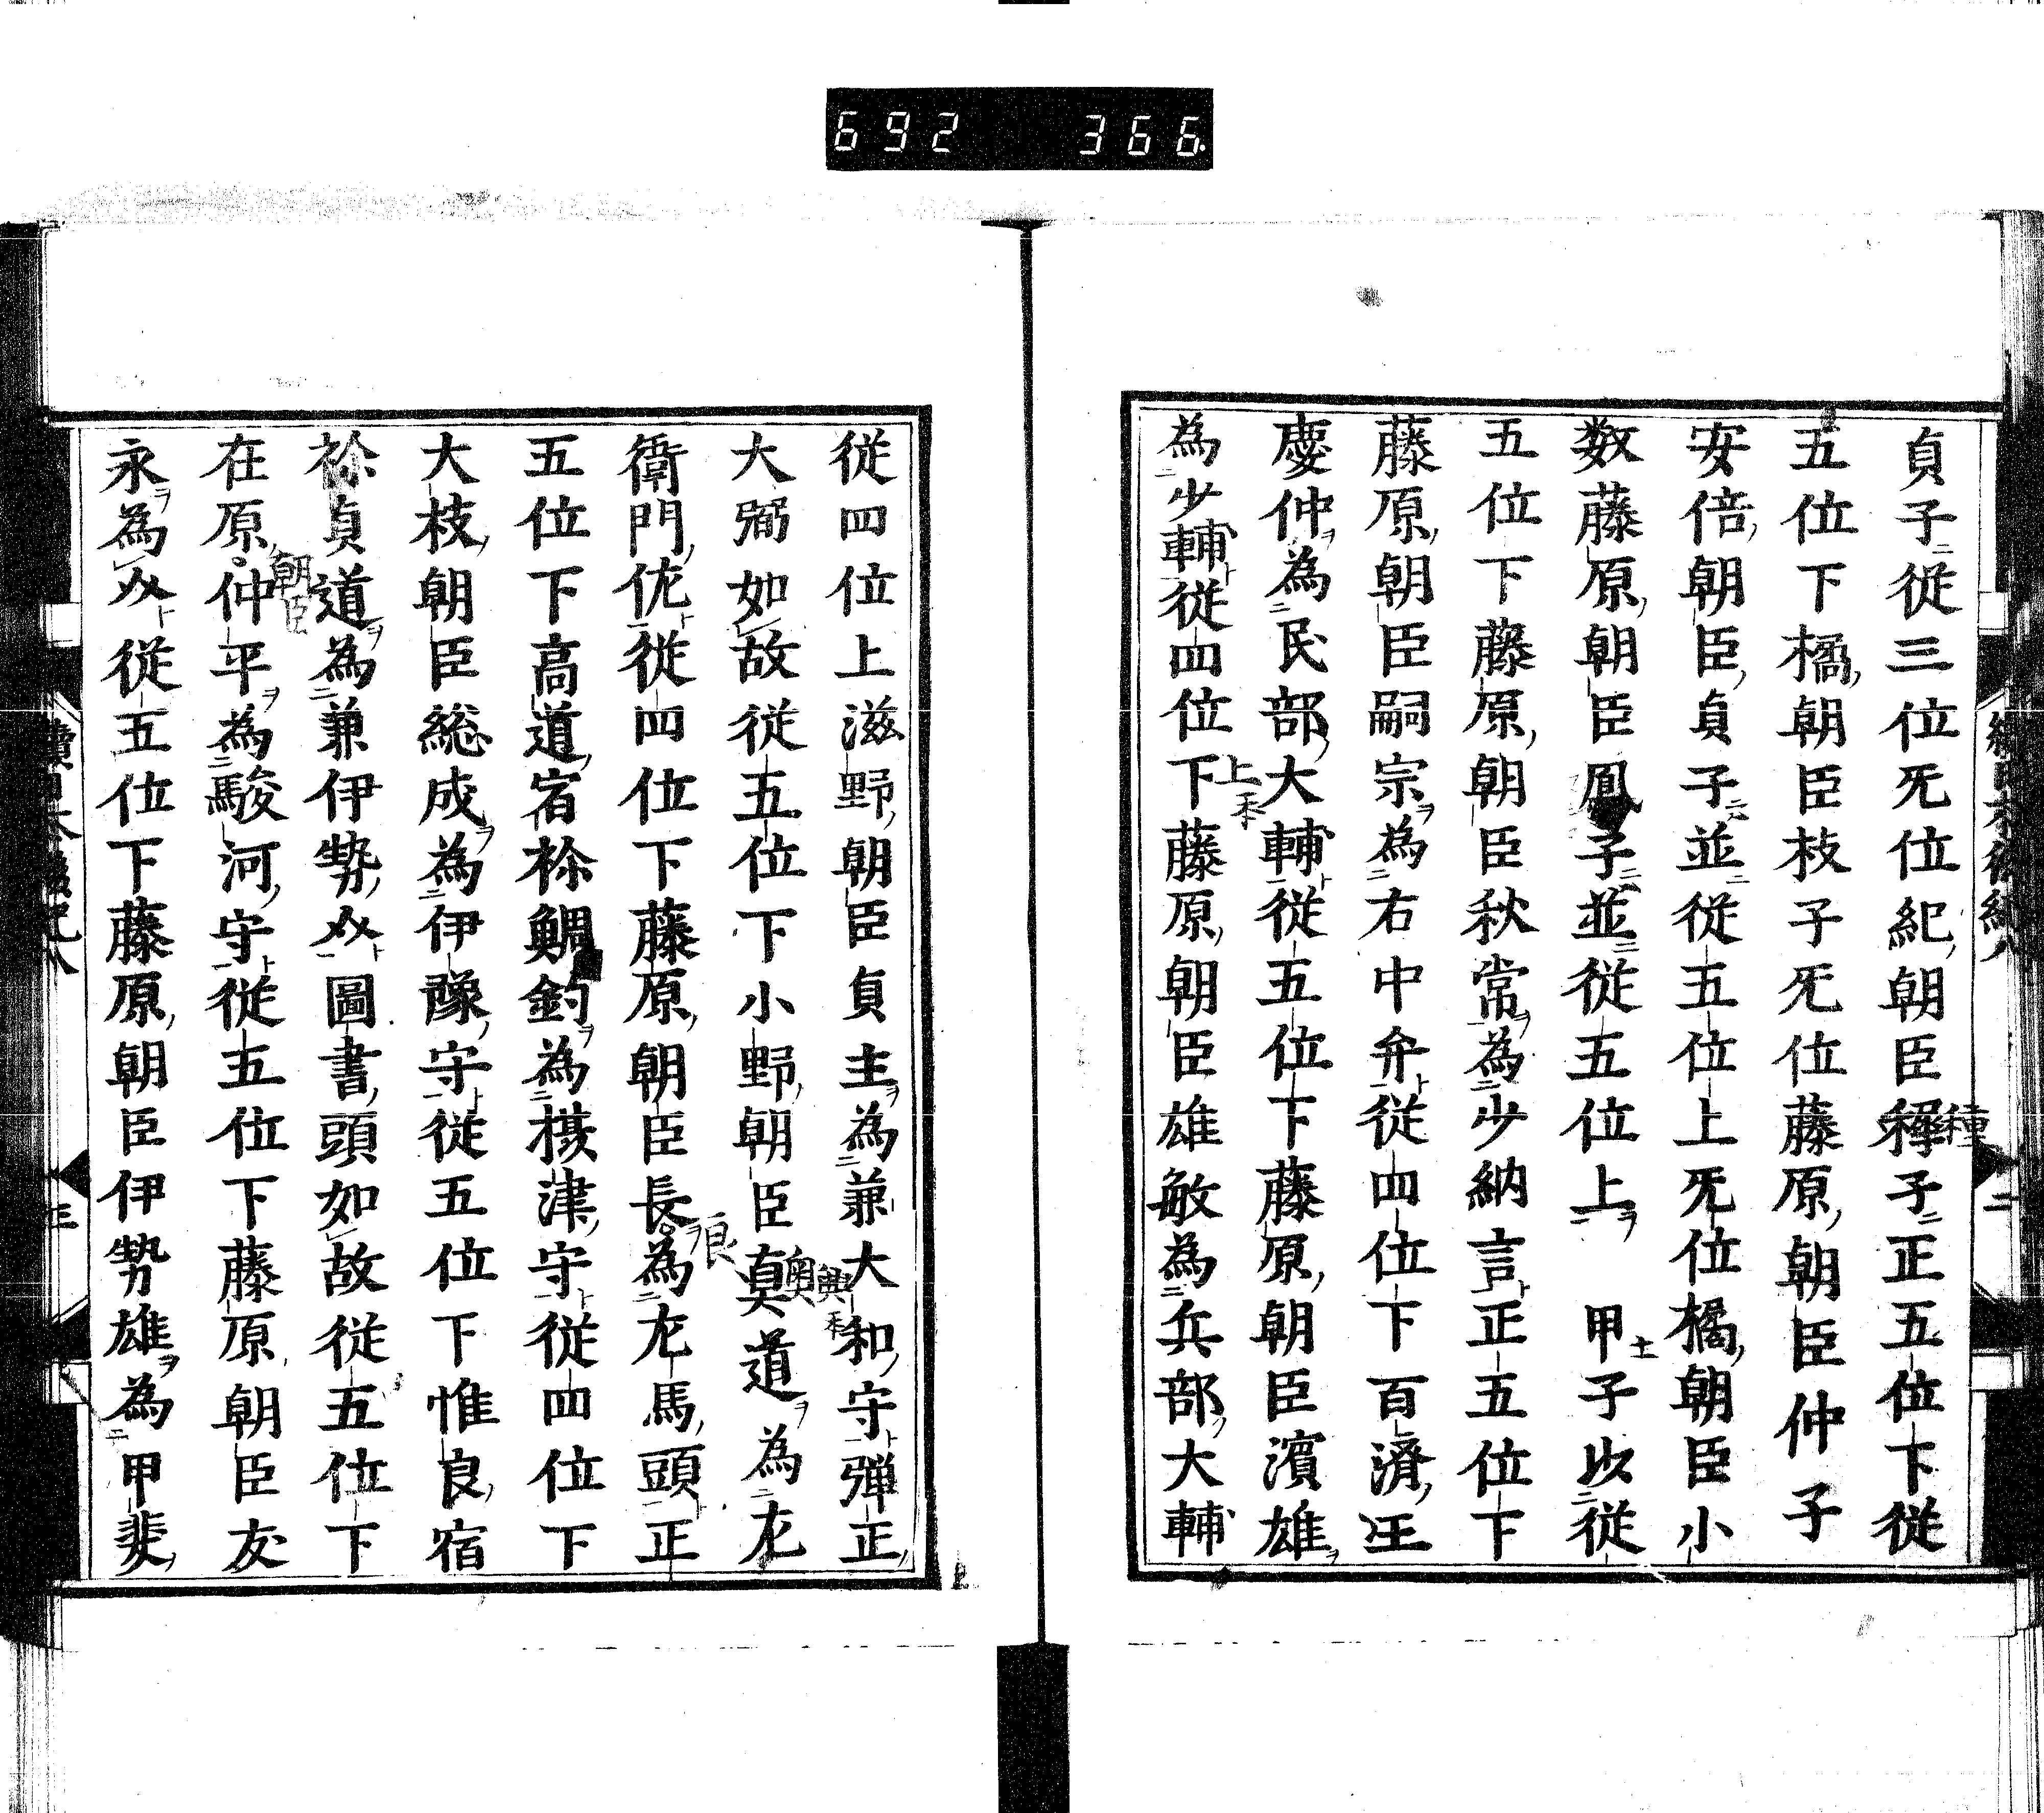 692 366
貞子従三位无位紀朝臣種子正五位下従
五位下橘朝臣枝子无位藤原朝臣仲子
安倍朝臣貞子並従五位上无位橘朝臣小
数藤原朝臣子並従五位上 甲子以従
五位下藤原朝臣秋常為少納言正五位下
藤原朝臣嗣宗為右中弁従四位下百済王
慶仲為民部大輔従五位下藤原朝臣濱雄
為少輔従四位下藤原朝臣雄敏為兵部大輔
従四位上滋野朝臣貞主為兼大和守弾正
大弼如故従五位下小野朝臣真道為左
衛門佐従四位下藤原朝臣長為左馬頭正
五位下高道宿祢鯛釣為摂津守従四位下
大枝朝臣総成為伊豫守従五位下惟良宿
祢貞道為兼伊勢介圖書頭如故従五位下
在原仲平為駿河守従五位下藤原朝臣友
朝臣
永為介従五位下藤原朝臣伊勢雄為甲斐